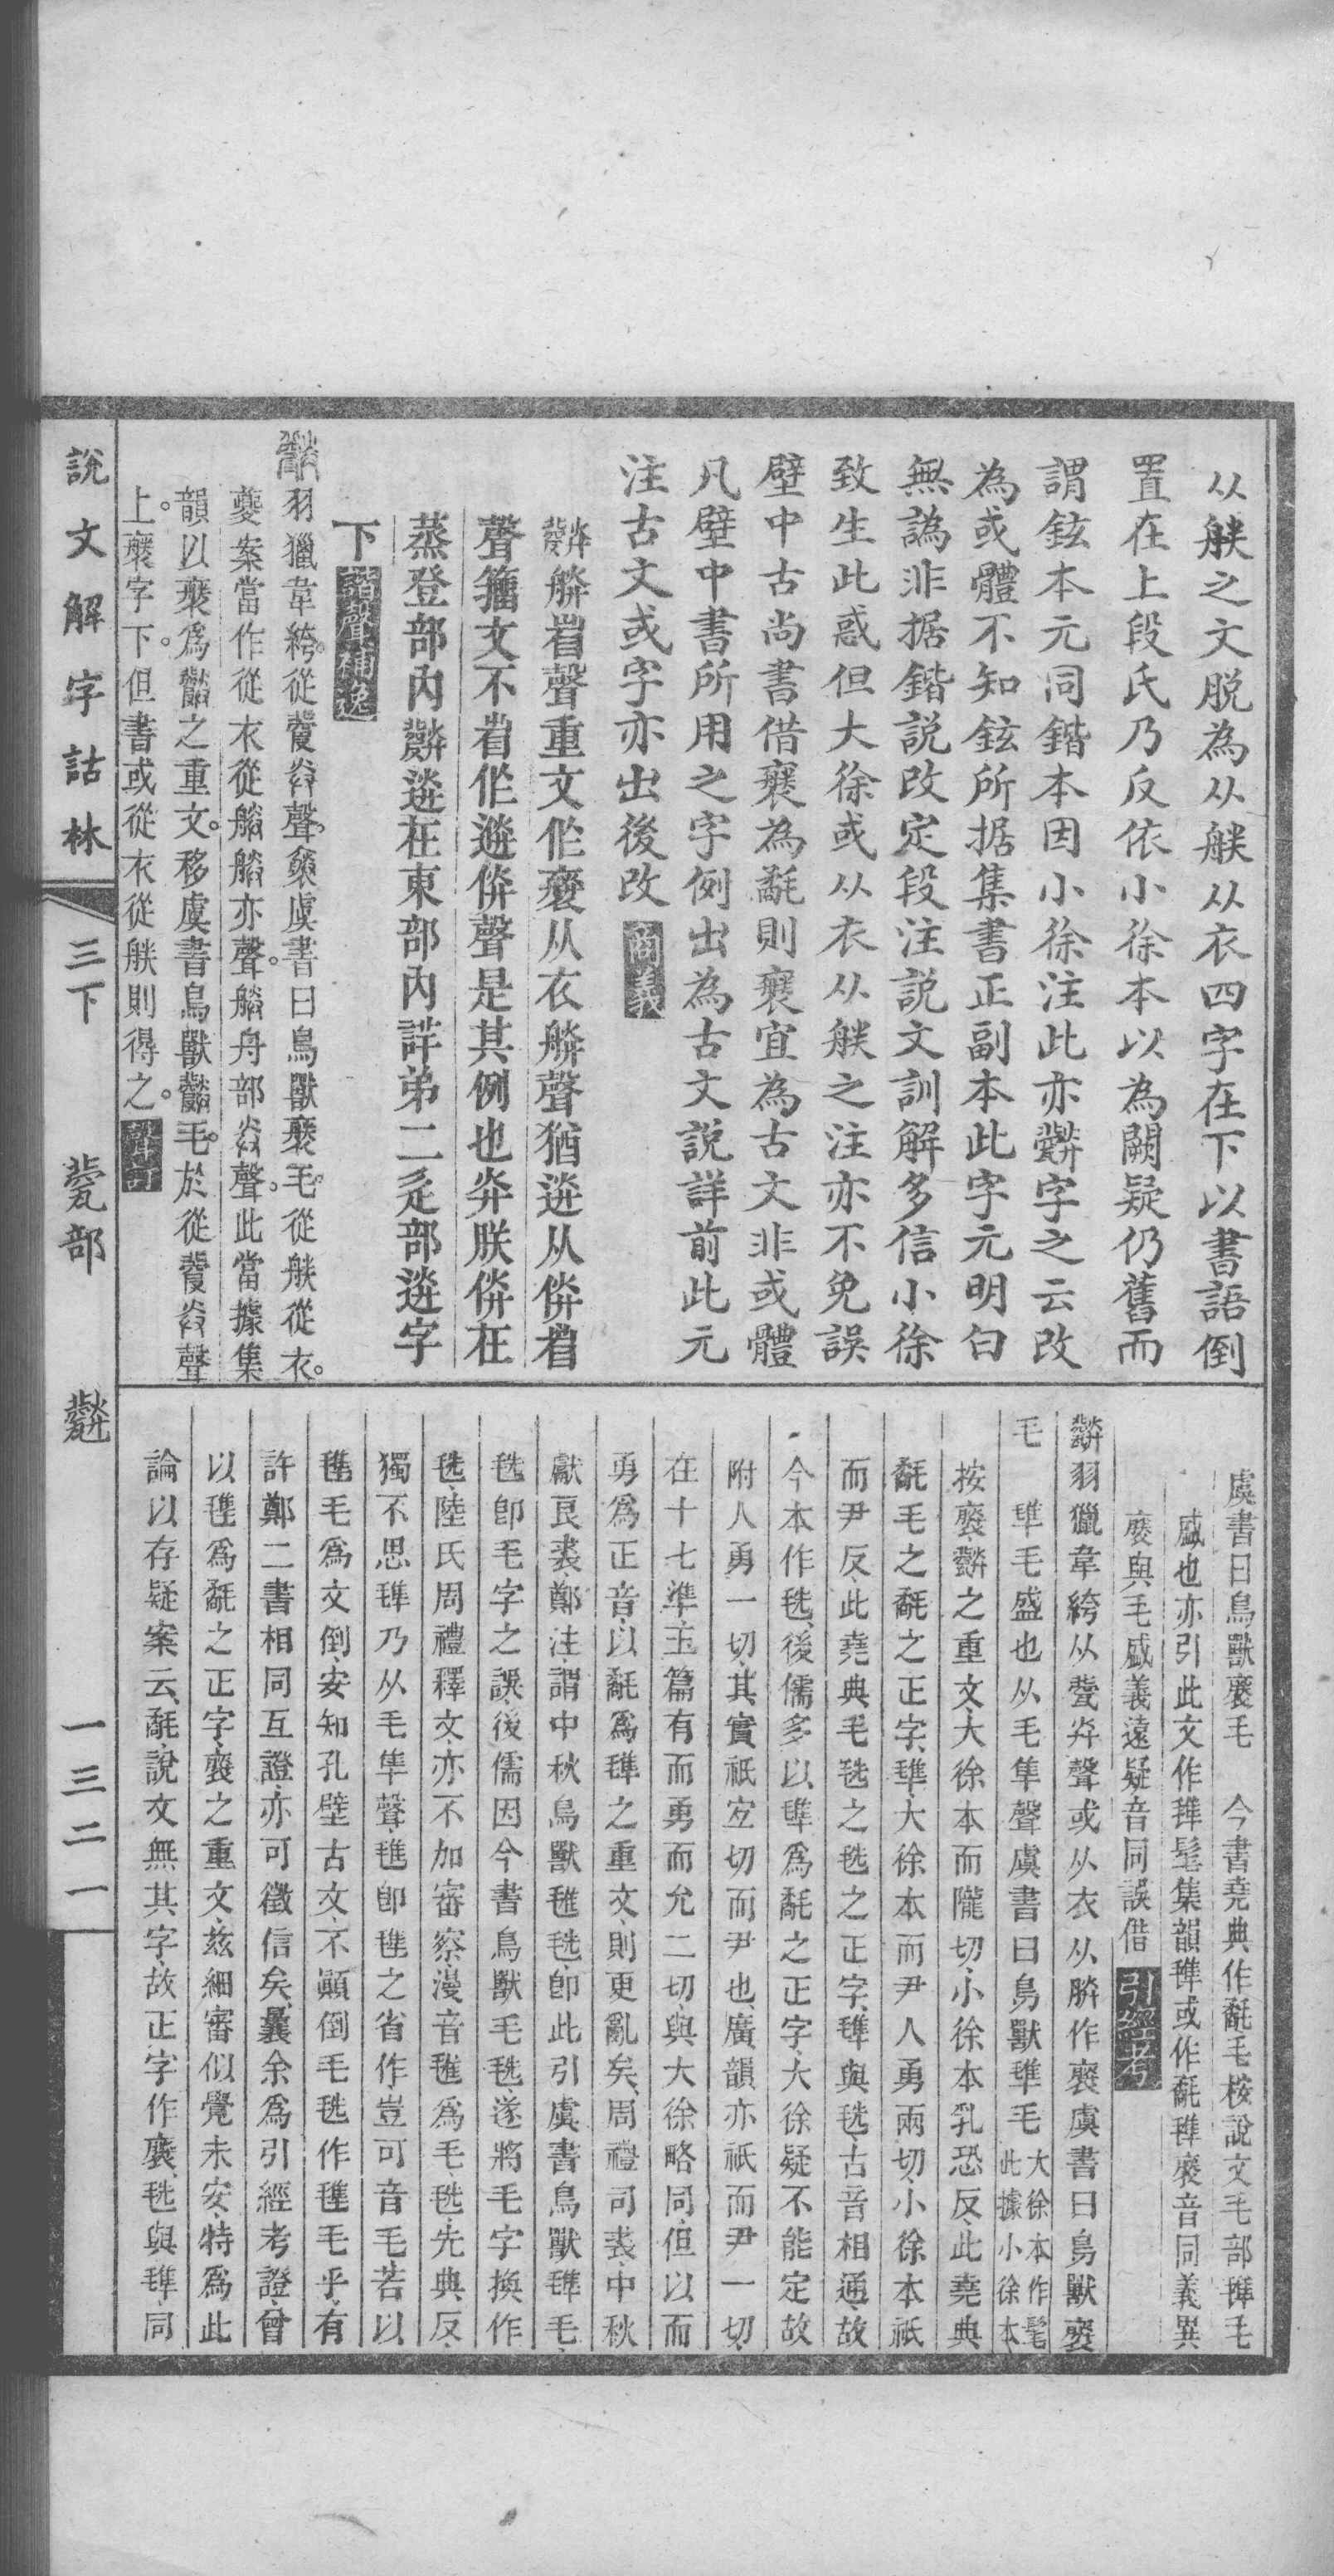 从䑞之文脱為从䑞从衣四字在下以書語倒
置在上段氏乃反依小徐本以為闕疑仍舊而
謂鉉本元同鍇本因小徐注此亦字之云改
為或體不知鉉所据集書正副本此字元明白
無譌非据鍇説改定段注説文訓解多信小徐
致生此惑但大徐或从衣从䑞之注亦不免誤
壁中古尚書借為氄則宜為古文非或體
凡壁中書所用之字例出為古文説詳前此元
注古文或字亦出後改 商義
聲重文作从衣聲猶从
聲籒文不作聲是其例也朕在
蒸登部內在東部內詳弟二辵部字
下 諧聲補逸
羽獵韋絝。從聲。虞書曰鳥獸毛。從䑞從衣。
案當作從衣從亦聲。舟部聲。此當據集
韻以為之重文。移虞書鳥獸毛。於從聲
上。字下。但書或從衣從䑞則得之。 聲訂
虞書曰鳥獸毛 今書堯典作氄毛桉說文毛部毛
盛也亦引此文作髦集韻或作氄音同義異
與毛盛義遠疑音同誤借 引經考
羽獵韋絝从聲或从衣从作虞書曰鳥獸
毛 毛盛也从毛隼聲虞書曰鳥獸毛 大徐本作髦此據小徐本
按之重文大徐本而隴切小徐本乳恐反此堯典
氄毛之氄之正字大徐本而尹人勇兩切小徐本祇
而尹反此堯典毛毨之毨之正字與毨古音相通故
今本作毨後儒多以為氄之正字大徐疑不能定故
附人勇一切其實祇宐切而尹也廣韻亦祇而尹一切
在十七準玉篇有而勇而允二切與大徐略同但以而
勇爲正音以氄爲之重文則更亂矣周禮司裘中秋
獻良裘鄭注謂中秋鳥獸毨卽此引虞書鳥獸毛
毨卽毛字之誤後儒因今書鳥獸毛毨遂將毛字換作
毨陸氏周禮釋文亦不加審察漫音爲毛毨先典反
獨不思乃从毛隼聲卽之省作豈可音毛若以
毛爲文倒安知孔壁古文不顚倒毛毨作毛乎有
許鄭二書相同互證亦可徵信矣曩余爲引經考證曾
以爲氄之正字之重文玆細審似覺未安特爲此
論以存疑案云氄說文無其字故正字作毨與同
說文解字詁林 三下 部 一三二一